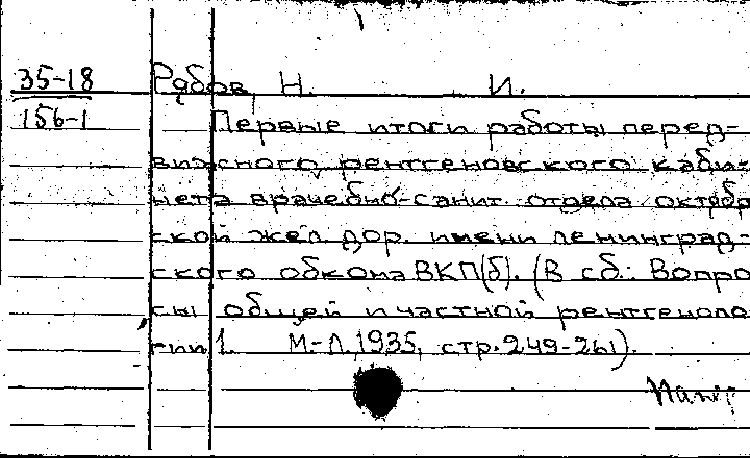 35-18 Рябов, Н. И.
156-1 Первые итоги работы перед-
вижного рентгеновского каби-
нета врачебно-санит. отдела октябр
ской жел. дор. имени ленинград-
ского обкома ВКП(б). (В сб.: Вопро
сы общей и частной рентгеноло
гии 1. М.-Л. 1935, стр. 249-261).